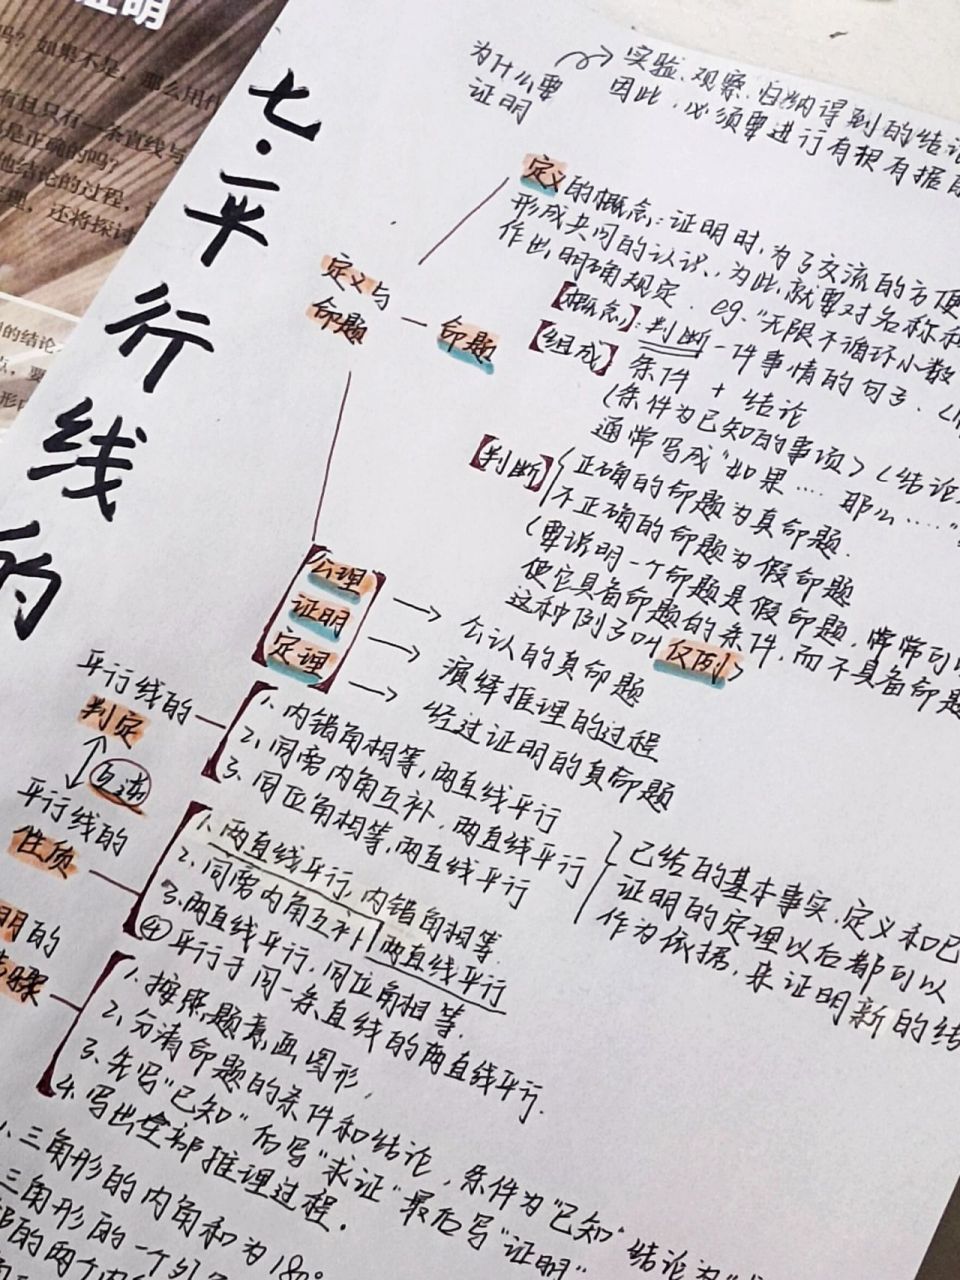 证明
七·平行线的
为什么要
证明
实验、观察、归纳得到的结论
因此,必须要进行有根有据的
定义与
命题
定义的概念:证明时,为了交流的方便
形成共同的认识,为此,就要对名称和
作出明确规定. eg.“无限不循环小数
命题
【概念】:判断一件事情的句子.
【组成】 条件 + 结论
(条件为已知的事项)(结论
通常写成“如果……那么……”
【判断】 正确的命题为真命题.
不正确的命题为假命题
(要说明一个命题是假命题,常常可以
使它具备命题的条件,而不具备命题
这种例子叫反例)
公理 → 公认的真命题
证明 → 演绎推理的过程
定理 → 经过证明的真命题
平行线的
判定
1. 内错角相等,两直线平行
2. 同旁内角互补,两直线平行
3. 同位角相等,两直线平行
互逆
平行线的
性质
1. 两直线平行,内错角相等.
2. 同旁内角互补 两直线平行
3. 两直线平行,同位角相等.
④ 平行于同一条直线的两直线平行.
已给的基本事实,定义和已
证明的定理以后都可以
作为依据,来证明新的结
明的
步骤
1. 按照题意画图形,
2. 分清命题的条件和结论,
3. 先写“已知”后写“求证”最后写“证明”
条件为“已知”结论为“
4. 写出全部推理过程.
1、三角形的内角和为180°
三角形的一个外
的两个内